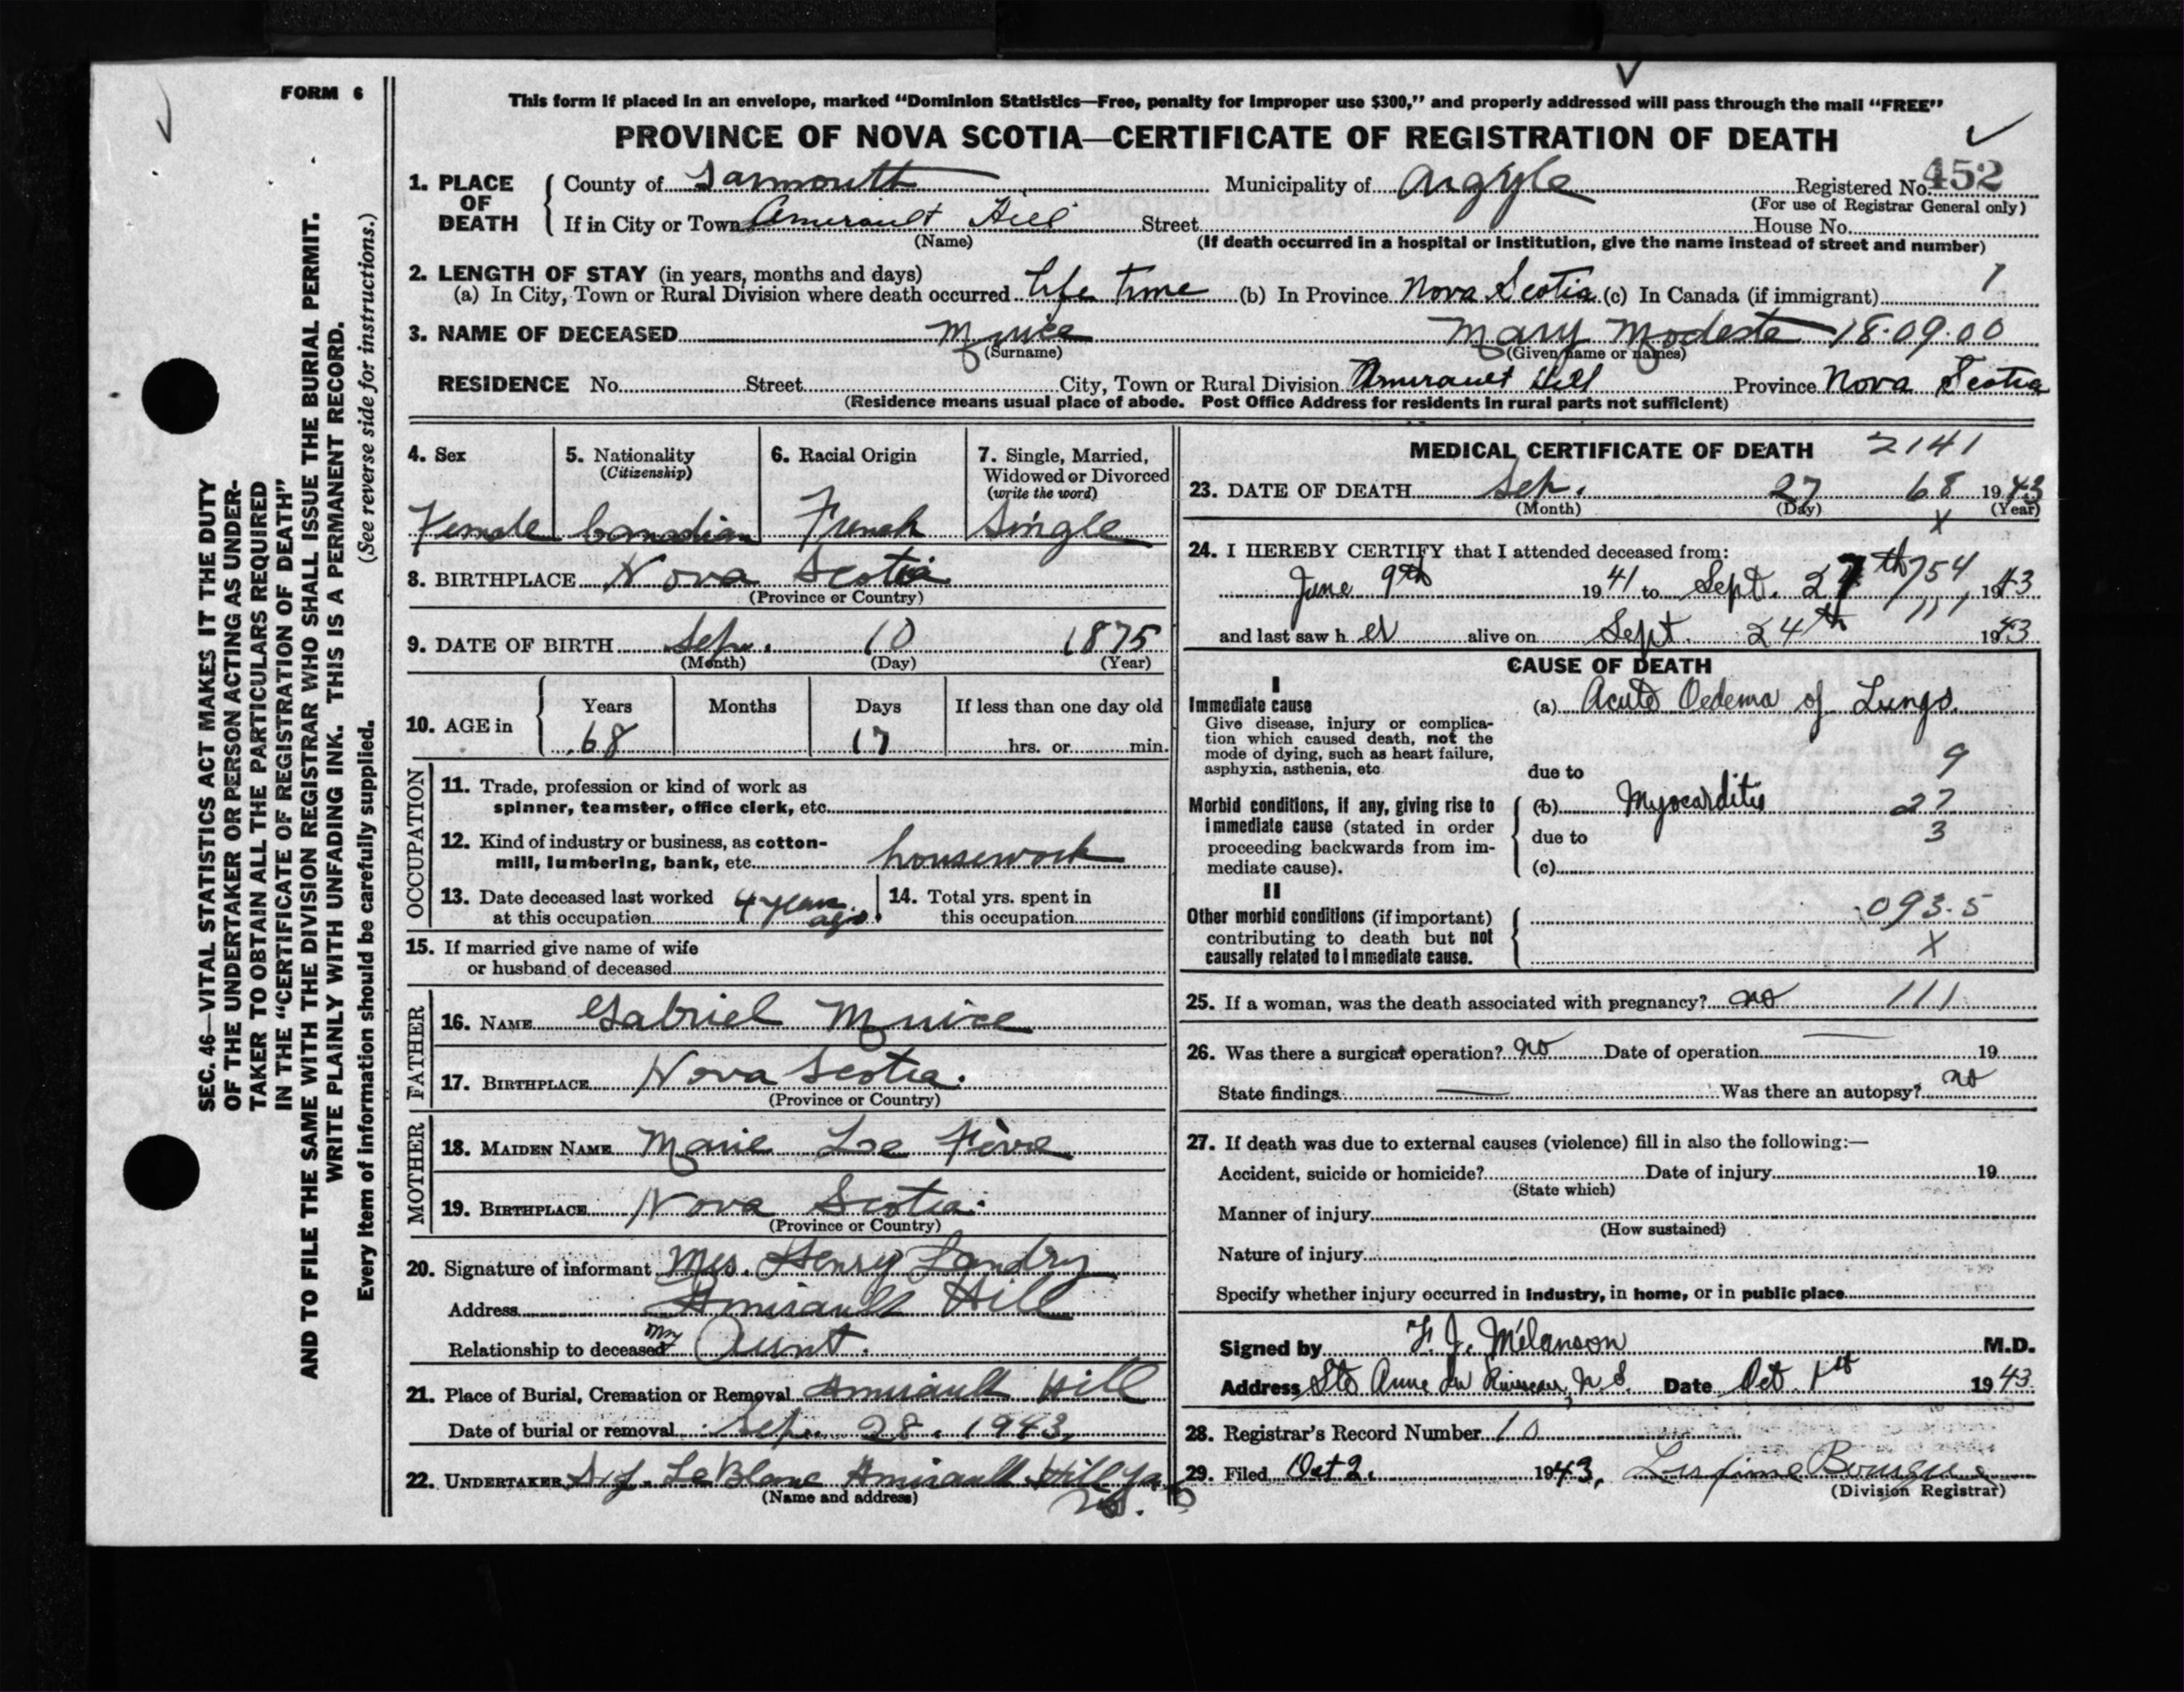 FORM 6
This form if placed in an envelope, marked “Dominion Statistics—Free, penalty for improper use $300,” and properly addressed will pass through the mail “FREE”
PROVINCE OF NOVA SCOTIA—CERTIFICATE OF REGISTRATION OF DEATH
SEC. 46—VITAL STATISTICS ACT MAKES IT THE DUTY
OF THE UNDERTAKER OR PERSON ACTING AS UNDER-
TAKER TO OBTAIN ALL THE PARTICULARS REQUIRED
IN THE “CERTIFICATE OF REGISTRATION OF DEATH”
AND TO FILE THE SAME WITH THE DIVISION REGISTRAR WHO SHALL ISSUE THE BURIAL PERMIT.
WRITE PLAINLY WITH UNFADING INK. THIS IS A PERMANENT RECORD.
Every item of information should be carefully supplied. (See reverse side for instructions.)
1. PLACE OF DEATH
County of Yarmouth Municipality of Argyle Registered No. 452
(For use of Registrar General only)
If in City or Town Amirault Hill Street House No.
(Name) (If death occurred in a hospital or institution, give the name instead of street and number)
2. LENGTH OF STAY (in years, months and days) 1
(a) In City, Town or Rural Division where death occurred Life Time (b) In Province Nova Scotia (c) In Canada (if immigrant)
3. NAME OF DECEASED Muice Mary Modeste 18-09-00
(Surname) (Given name or names)
RESIDENCE No. Street City, Town or Rural Division Amirault Hill Province Nova Scotia
(Residence means usual place of abode. Post Office Address for residents in rural parts not sufficient)
4. Sex 5. Nationality 6. Racial Origin 7. Single, Married,
(Citizenship) Widowed or Divorced
(write the word)
Female Canadian French Single
8. BIRTHPLACE Nova Scotia
(Province or Country)
9. DATE OF BIRTH Sep. 10 1875
(Month) (Day) (Year)
10. AGE in Years Months Days If less than one day old
68 17 hrs. or min.
OCCUPATION
11. Trade, profession or kind of work as
spinner, teamster, office clerk, etc.
12. Kind of industry or business, as cotton-
mill, lumbering, bank, etc. housework
13. Date deceased last worked 4 years 14. Total yrs. spent in
at this occupation ago. this occupation
15. If married give name of wife
or husband of deceased
FATHER
16. NAME Gabriel Muice
17. BIRTHPLACE Nova Scotia.
(Province or Country)
MOTHER
18. MAIDEN NAME Marie Le Fève
19. BIRTHPLACE Nova Scotia.
(Province or Country)
20. Signature of informant Mrs. Henry Landry
Address Amirault Hill
Relationship to deceased my Aunt.
21. Place of Burial, Cremation or Removal Amirault Hill
Date of burial or removal Sep. 28. 1943,
22. UNDERTAKER LeBlanc Amirault Hill
(Name and address) N.S.
MEDICAL CERTIFICATE OF DEATH 2141
23. DATE OF DEATH Sep. 27 68 1943
(Month) (Day) (Year)
X
24. I HEREBY CERTIFY that I attended deceased from:
June 9th 1941 to Sept. 27th 754 1943
and last saw h er alive on Sept. 24th 111 1943
CAUSE OF DEATH
I
Immediate cause (a) Acute Oedema of Lungs.
Give disease, injury or complica-
tion which caused death, not the
mode of dying, such as heart failure,
asphyxia, asthenia, etc. due to 9
Morbid conditions, if any, giving rise to (b) Myocarditis 27
immediate cause (stated in order
proceeding backwards from im- due to 3
mediate cause). (c)
II
Other morbid conditions (if important) 093.5
contributing to death but not
causally related to immediate cause. X
25. If a woman, was the death associated with pregnancy? no 111
26. Was there a surgical operation? no Date of operation — 19
State findings — Was there an autopsy? no
27. If death was due to external causes (violence) fill in also the following:—
Accident, suicide or homicide? Date of injury 19
(State which)
Manner of injury
(How sustained)
Nature of injury
Specify whether injury occurred in industry, in home, or in public place
Signed by F. J. Melanson M.D.
Address Ste Anne du Ruisseau, N.S. Date Oct. 1st 1943
28. Registrar's Record Number 10
29. Filed Oct 2. 1943, Bourque
(Division Registrar)